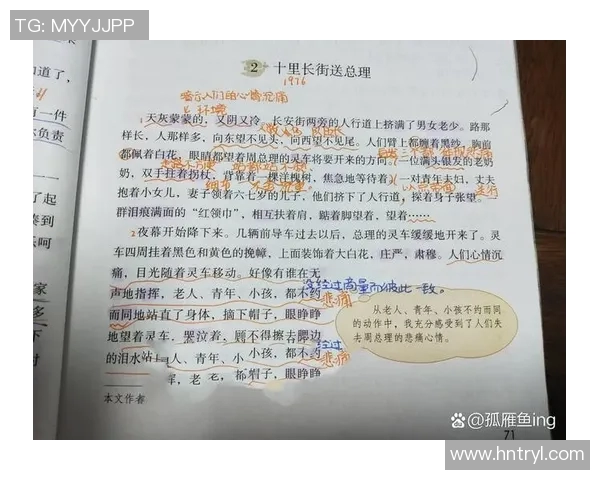 TG: MYYJJPP
2 十里长街送总理
1976
暗示人们的心情沉痛
环境
1天灰蒙蒙的，又阴又冷。长安街两旁的人行道上挤满了男女老少。路那
样长，人那样多，向东望不见头，向西望不见尾。人们臂上都缠着黑纱，胸前
都佩着白花，眼睛都望着周总理的灵车将要开来的方向。一位满头银发的老奶
奶，双手拄着拐杖，背靠着一棵洋槐树，焦急地等待着。一对青年夫妇，丈夫
抱着小女儿，妻子领着六七岁的儿子，他们挤下了人行道，探着身子张望。
群泪痕满面的“红领巾”，相互扶着肩，踮着脚望着，望着……
2夜幕开始降下来。几辆前导车过去以后，总理的灵车缓缓地开来了。灵
车四周挂着黑色和黄色的挽幛，上面装饰着大白花，庄严，肃穆。人们心情沉
痛，目光随着灵车移动。好像有谁在无
没经过商量而彼此一致。
声地指挥，老人、青年、小孩，都不约
悲痛
而同地站直了身体，摘下帽子，眼睁睁
地望着灵车，哭泣着，顾不得擦去腮边
的泪水
人、青年、小孩，都不约
经过
悲痛
帽子，眼睁睁
从老人、青年、小孩不约而同
的动作中，我充分感受到了人们失
去周总理的悲痛心情。
本文作者
道了，
有一件
负责
71
@孤雁鱼ing
www.hntryl.com